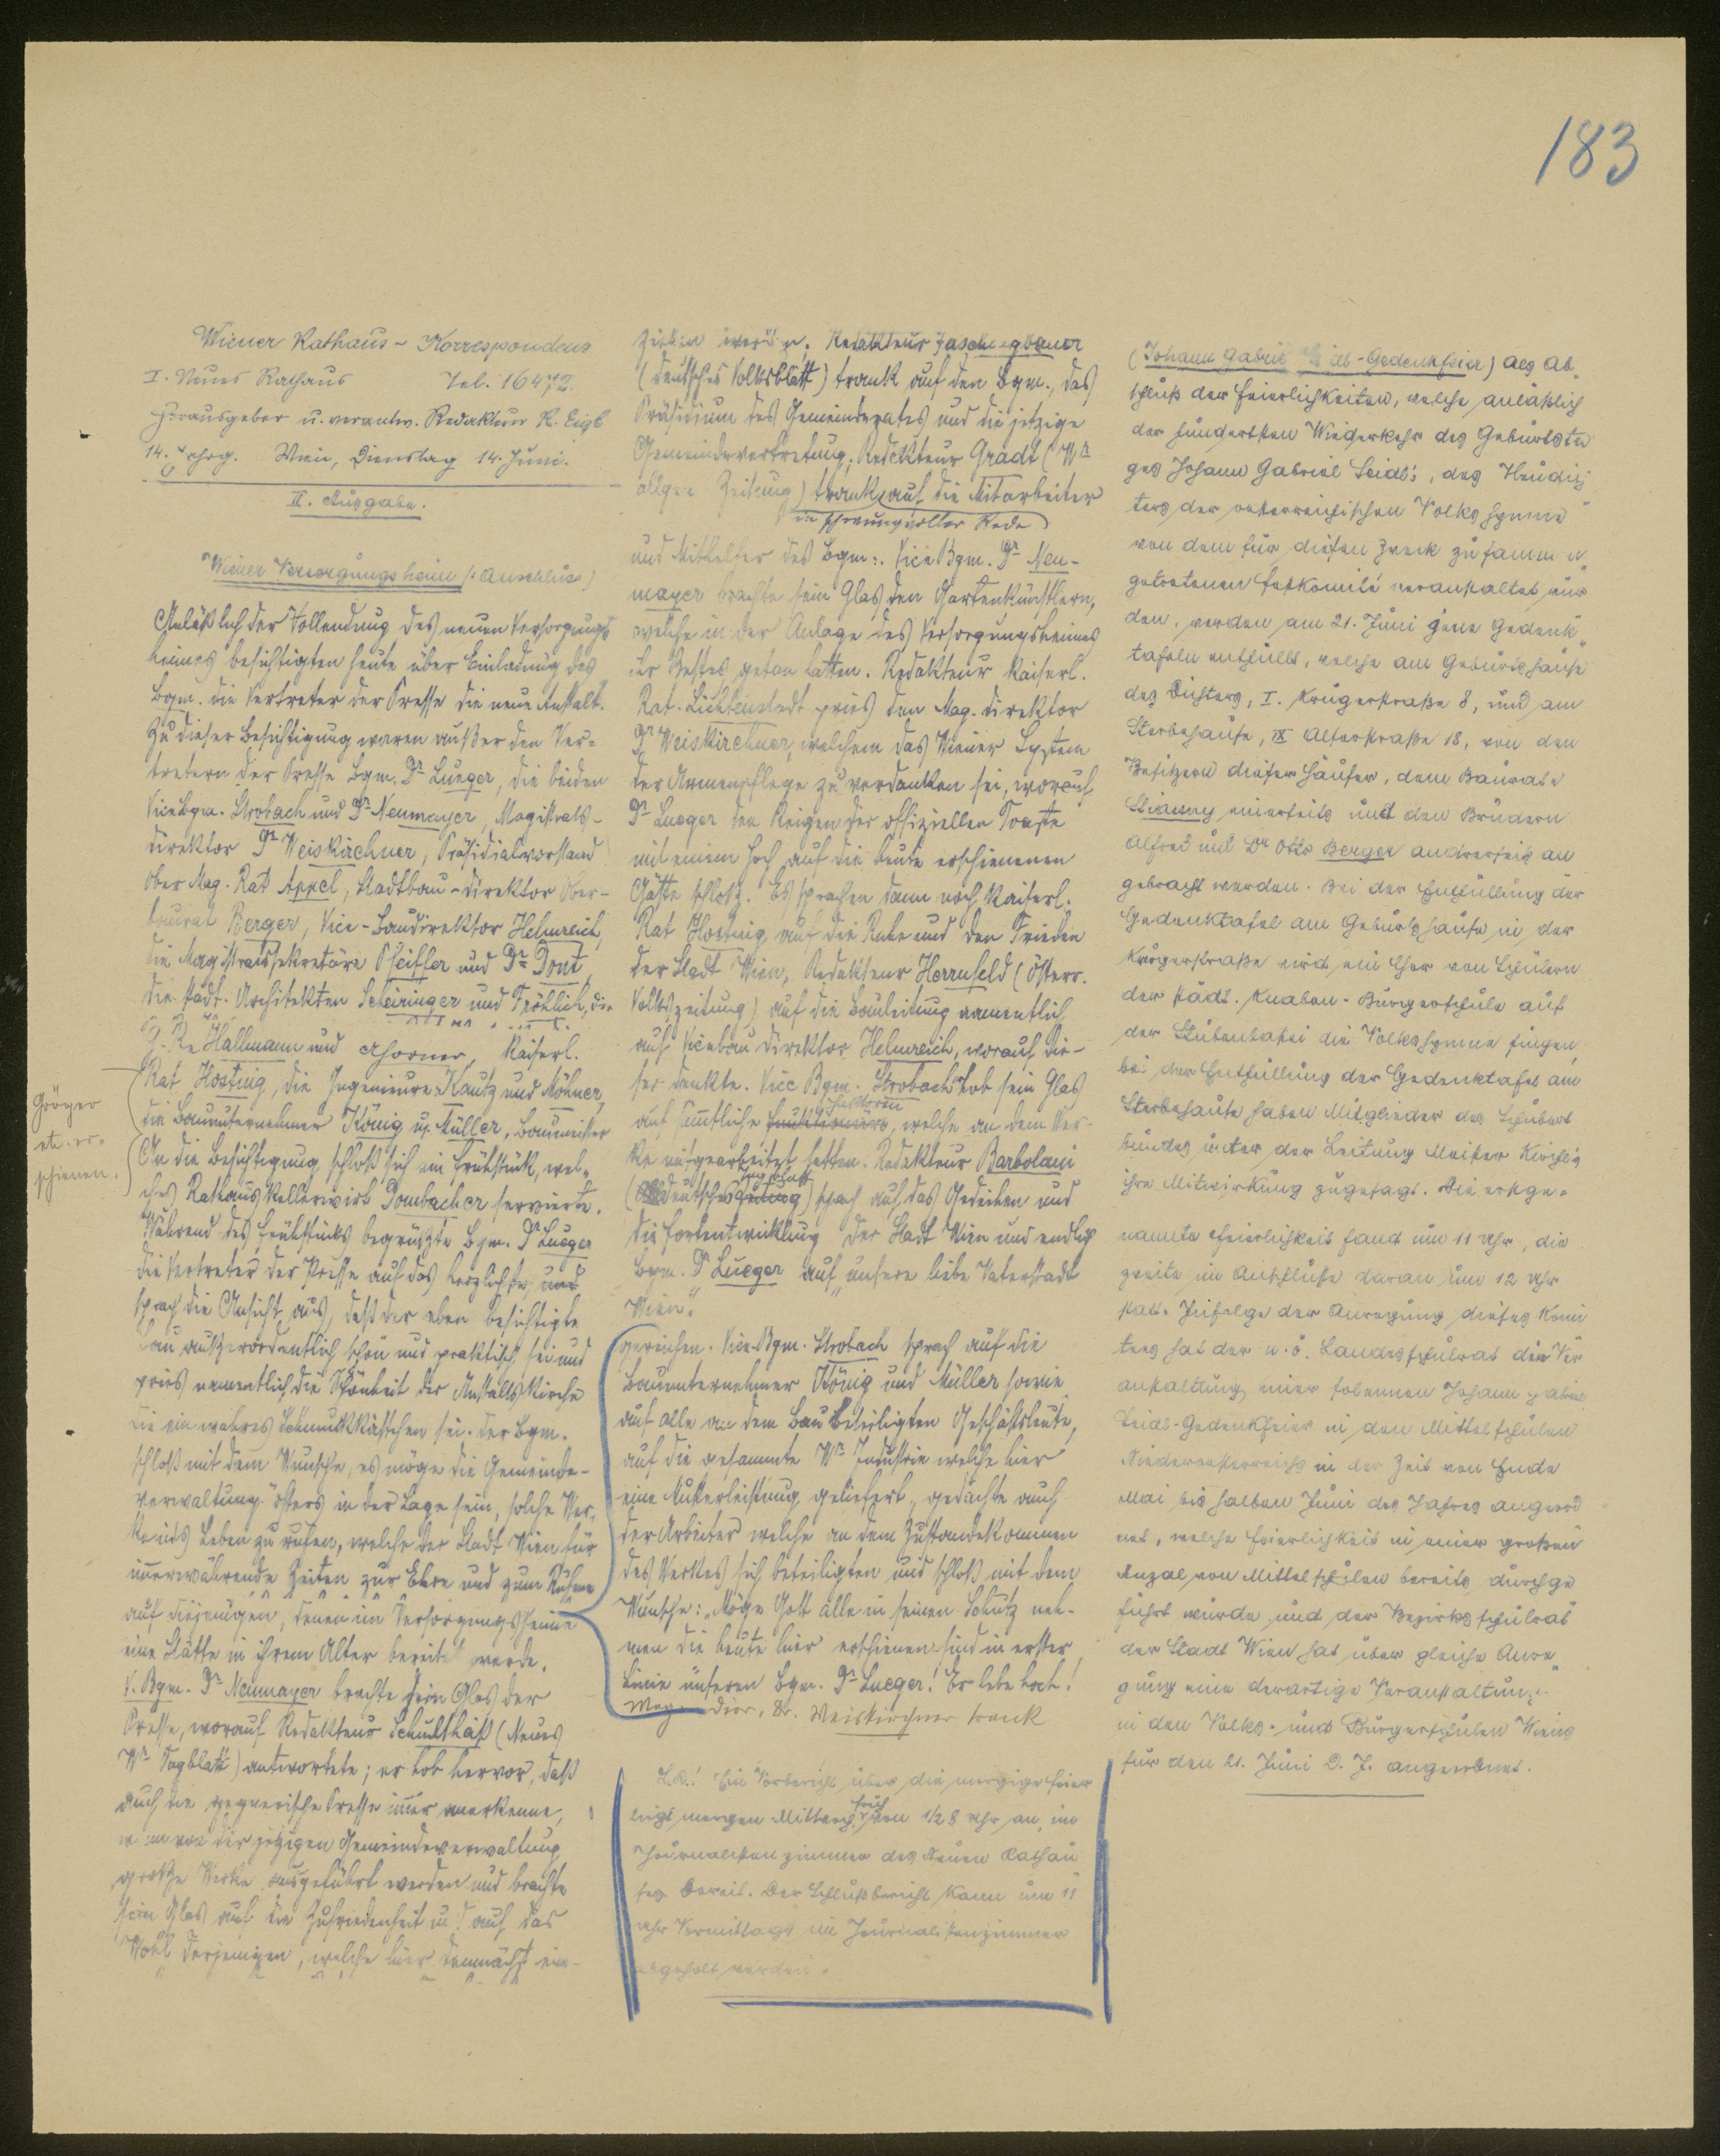 183
Wiener Rathaus-Korrespondenz
I. Neues Rathaus Tel. 16472.
Herausgeber u. verantw. Redakteur R. Eigl
14. Jahrg. Wien, Dienstag 14. Juni.
II. Ausgabe.
"Wiener Versorgungsheim (:Anschluss)
Anläßlich der Vollendung des neuen Versorgungs-
heimes besichtigten heute über Einladung des
Bgm. die Vertreter der Presse die neue Anstalt.
Zu dieser Besichtigung waren außer den Ver-
tretern der Presse Bgm. Dr. Lueger, die beiden
Vicebgm. Strobach und Dr. Neumayer, Magistrats-
direktor Dr. Weiskirchner, Präsidialvorstand
Ober Mag. Rat Appel, Stadtbau-Direktor Ober-
baurat Berger, Vice-Baudirektor Helmreich,
die Magistratssekretäre Pfeiffer und Dr. Dont,
die städt. Architekten Scheiringer und Fröhlich, die
G. Re Hallmann und Kaiserl.
Rat Hosting, die Ingenieure Kautz und Möhner,
die Bauunternehmer König u. Müller, Baumeister
Gröger
etc. er-
schienen.
An die Besichtigung schloß sich ein Frühstück, wel-
ches Rathauskellerwirt Dombacher servierte.
Während des Frühstücks begrüßte Bgm. Dr. Lueger
die Vertreter der Presse auf das herzlichste, und
sprach die Ansicht aus, daß der eben besichtigte
Bau außerordentlich schön und praktisch sei und
pries namentlich die Schönheit der Anstaltskirche
die ein wahres Schmuckkästchen sei. Der Bgm.
schloß mit dem Wunsche, es möge die Gemeinde-
verwaltung öfters in der Lage sein, solche Wer-
ke ins Leben zu rufen, welche der Stadt Wien für
immerwährende Zeiten zur Ehre und zum Ruhme
gereichen. Vice-Bgm. Strobach sprach auf die
Bauunternehmer König und Müller sowie
auf alle an dem Bau beteiligten Geschäftsleute,
auf die gesammte Wr. Industrie welche hier
eine Musterleistung geliefert, gedachte auch
der Arbeiter welche an dem Zustandekommen
des Werkes sich beteiligten und schloß mit dem
Wunsche: „Möge Gott alle in seinen Schutz neh-
men die heute hier erschienen sind in erster
Linie unseren Bgm. Dr. Lueger! Er lebe hoch!
Mag. Dior. Dr. Weiskirchner trank
auf diejenigen, denen im Versorgungsheime
eine Stätte in ihrem Alter bereitet werde.
V. Bgm. Dr. Neumayer brachte sein Glas der
Presse, worauf Redakteur Schulthaß (Neues
Wr. Tagblatt) antwortete; er hob hervor, daß
auch die gegnerische Presse immer anerkenne,
wenn von der jetzigen Gemeindeverwaltung
große Werke ausgeführt werden und brachte
sein Glas auf die Zufriedenheit und auf das
Wohl derjenigen, welche hier demnächst ein-
ziehen werden. Redakteur Faschingbauer
(Deutsches Volksblatt) trank auf den Bgm., das
Präsidium des Gemeinderates und die jetzige
Gemeindevertretung; Redakteur Gradt (Wr.
allgem. Zeitung) trank auf die Mitarbeiter
in schwungvoller Rede
und Mithelfer des Bgm:. Vice Bgm. Dr. Neu-
mayer brachte sein Glas den Gartenkünstlern,
welche in der Anlage des Versorgungsheimes
ihr Bestes getan hatten. Redakteur Kaiserl.
Rat Lichtenstadt pries den Mag. Direktor
Dr. Weiskirchner, welchem das Wiener System
der Armenpflege zu verdanken sei, worauf
Dr. Lueger den Reigen der offiziellen Toaste
mit einem Hoch auf die heute erschienenen
Gäste schloß. Es sprachen dann noch Kaiserl.
Rat Hosting auf die Ruhe und den Frieden
der Stadt Wien, Redakteur Herrnfeld (Österr.
Volkszeitung) auf die Bauleitung namentlich
auf Vicebau Direktor Helmreich, worauf die-
ser dankte. Vice Bgm. Strobach hob sein Glas
auf sämtliche Faktoren, welche an dem Wer-
ke mitgearbeitet hatten. Redakteur Barbolani
(Deutsche Zeitung) sprach auf das Gedeihen und
die Fortentwicklung der Stadt Wien und endlich
Bgm. Dr. Lueger auf „unsere liebe Vaterstadt
Wien."
L.R.! Ein Vorbericht über die morgige Feier
liegt morgen Mittwoch früh von 1/2 8 Uhr an, im
Journalistenzimmer des Neuen Rathau
ses bereit. Der Schlußbericht kann um 11
Uhr Vormittags im Journalistenzimmer
abgeholt werden.
(Johann Gabriel Seidl-Gedenkfeier) Als Ab-
schluß der Feierlichkeiten, welche anläßlich
der hundertsten Wiederkehr des Geburtsta
ges Johann Gabriel Seidl's, des Hendich
ters der österreichischen Volkshymne
von dem für diesen Zweck zusammen
getretenen Festkomité veranstaltet wur
den, werden am 21. Juni jene Gedenk
tafeln enthüllt, welche am Geburtshause
des Dichters, I. Krugerstraße 8, und am
Sterbehause, IX Alserstraße 18, von den
Besitzern dieser Häuser, dem Baurate
Stiassny einerseits und den Brüdern
Alfred und Dr Otto Berger anderseits an
gebracht werden. Bei der Enthüllung der
Gedenktafel am Geburtshause in der
Krugerstraße wird ein Chor von Schülern
der städt. Knaben-Bürgerschule auf
der Stubenbastei die Volkshymne singen,
bei der Enthüllung der Gedenktafel am
Sterbehause haben Mitglieder des Schubert
bundes unter der Leitung Meister Kirchl's
ihre Mitwirkung zugesagt. Die erstge-
nannte Feierlichkeit fand um 11 Uhr, die
zweite im Anschluße daran um 12 Uhr
statt. Zufolge der Anregung dieses Komi
tees hat der n. ö. Landesschulrat die Ver
anstaltung einer solennen Johann Gabriel
Seidl-Gedenkfeier in den Mittelschulen
Niederösterreichs in der Zeit von Ende
Mai bis halben Juni des Jahres angeord
net, welche Feierlichkeit in einer großen
Anzal von Mittelschulen bereits durchge
führt wurde und der Bezirksschulrat
der Stadt Wien hat über gleiche Anre
gung eine derartige Veranstaltung
in den Volks- und Bürgerschulen Wiens
für den 21. Juni d. J. angeordnet.